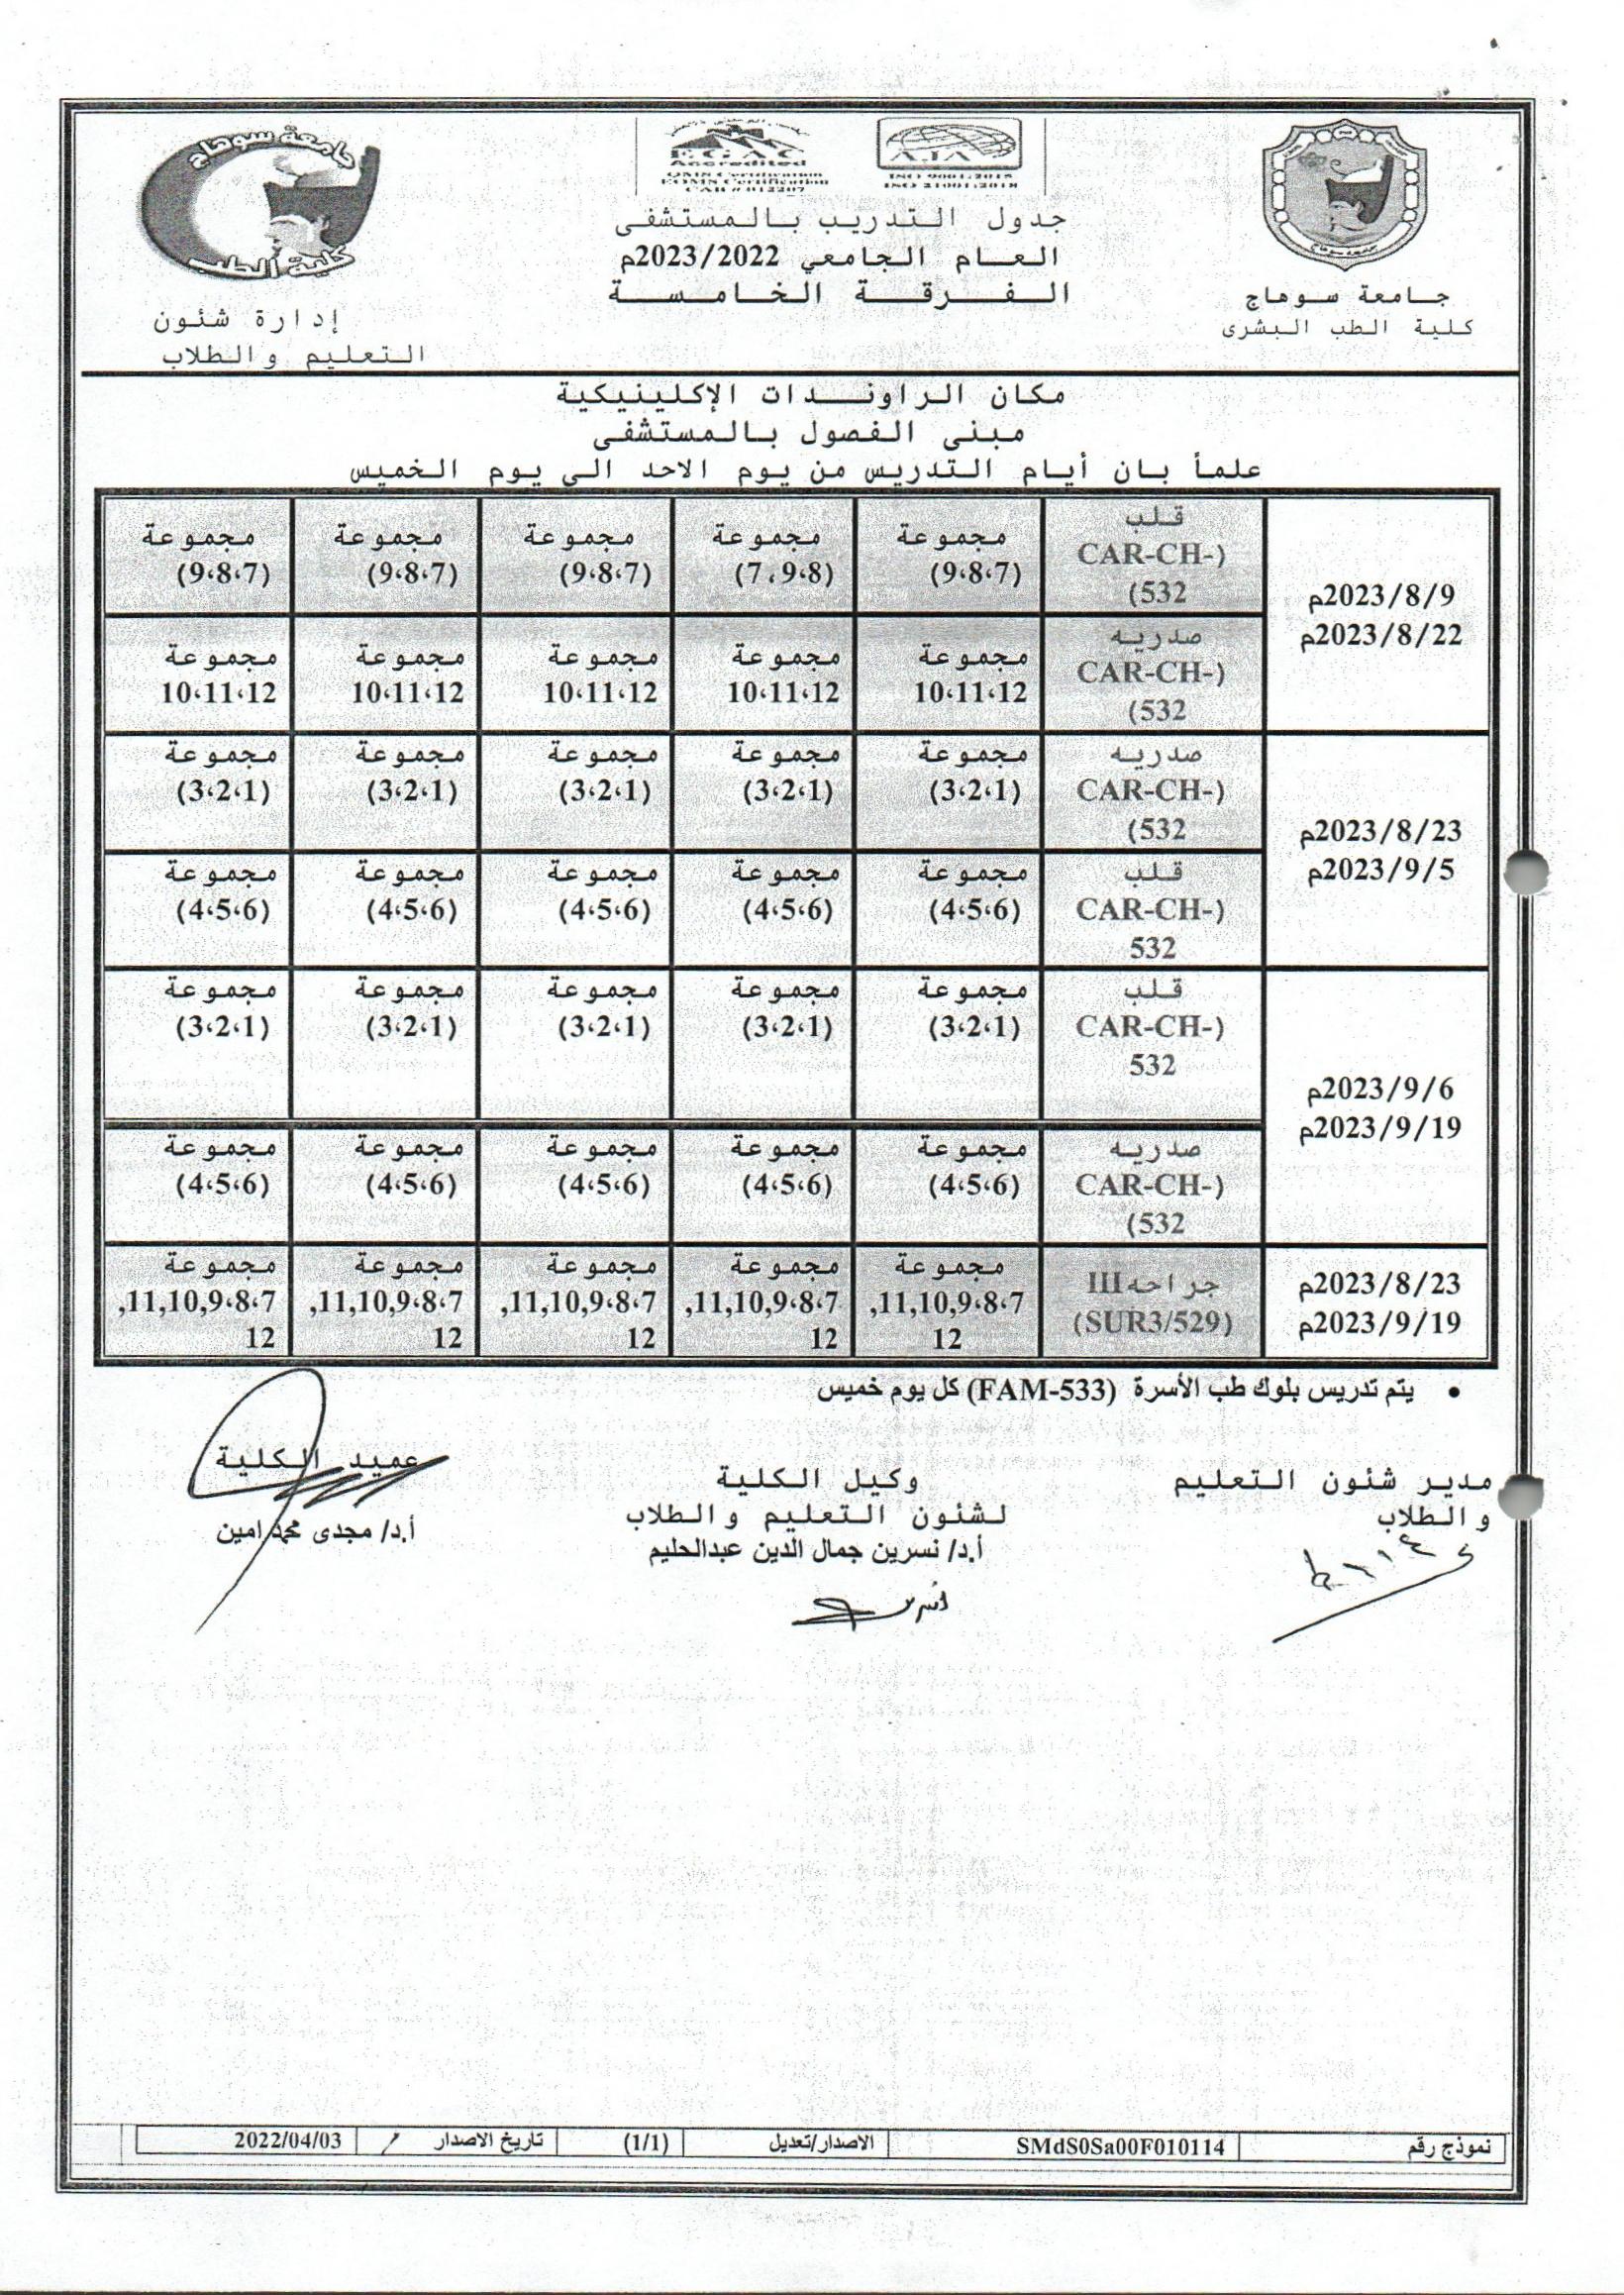 جامعة سوهاج
كلية الطب البشرى
EGAC
Accredited
QMS Certification
EOMS Certification
CAB # 012207
AJA
ISO 9001:2015
ISO 21001:2018
جدول التدريب بالمستشفى
العام الجامعي 2023/2022م
الفرقة الخامسة
جامعة سوهاج
كلية الطب
إدارة شئون
التعليم والطلاب
مكان الراوندات الإكلينيكية
مبنى الفصول بالمستشفى
علمأ بان أيام التدريس من يوم الاحد الى يوم الخميس
2023/8/9م
2023/8/22م
قلب
CAR-CH-)
(532
مجموعة
(9،8،7)
مجموعة
(7،9،8)
مجموعة
(9،8،7)
مجموعة
(9،8،7)
مجموعة
(9،8،7)
صدريه
CAR-CH-)
(532
مجموعة
10،11،12
مجموعة
10،11،12
مجموعة
10،11،12
مجموعة
10،11،12
مجموعة
10،11،12
2023/8/23م
2023/9/5م
صدريه
CAR-CH-)
(532
مجموعة
(3،2،1)
مجموعة
(3،2،1)
مجموعة
(3،2،1)
مجموعة
(3،2،1)
مجموعة
(3،2،1)
قلب
CAR-CH-)
532
مجموعة
(4،5،6)
مجموعة
(4،5،6)
مجموعة
(4،5،6)
مجموعة
(4،5،6)
مجموعة
(4،5،6)
2023/9/6م
2023/9/19م
قلب
CAR-CH-)
532
مجموعة
(3،2،1)
مجموعة
(3،2،1)
مجموعة
(3،2،1)
مجموعة
(3،2،1)
مجموعة
(3،2،1)
صدريه
CAR-CH-)
(532
مجموعة
(4،5،6)
مجموعة
(4،5،6)
مجموعة
(4،5،6)
مجموعة
(4،5،6)
مجموعة
(4،5،6)
2023/8/23م
2023/9/19م
جراحهIII
(SUR3/529)
مجموعة
,11,10,9،8،7
12
مجموعة
,11,10,9،8،7
12
مجموعة
,11,10,9،8،7
12
مجموعة
,11,10,9،8،7
12
مجموعة
,11,10,9،8،7
12
• يتم تدريس بلوك طب الأسرة (FAM-533) كل يوم خميس
مدير شئون التعليم
والطلاب
وكيل الكلية
لشئون التعليم والطلاب
أ.د/ نسرين جمال الدين عبدالحليم
عميد الكلية
أ.د/ مجدى محمد امين
نموذج رقم SMdS0Sa00F010114 الاصدار/تعديل (1/1) تاريخ الاصدار 2022/04/03